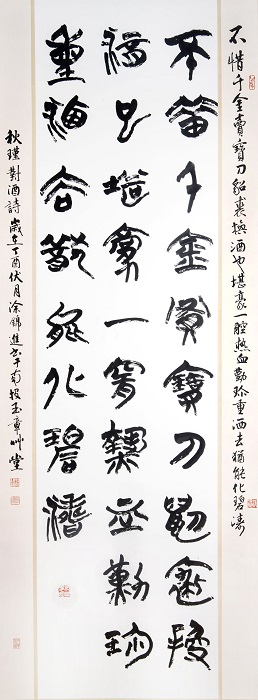 不惜千金賣寶刀貂裘換酒也堪豪一腔熱血勤珍重洒去猶能化碧濤
不惜千金買寶刀貂裘換
酒也堪豪一腔熱血勤珍
重洒去猶能化碧濤
秋瑾對酒詩歲在丁酉伏月涂錦進書于南投玉章艸堂